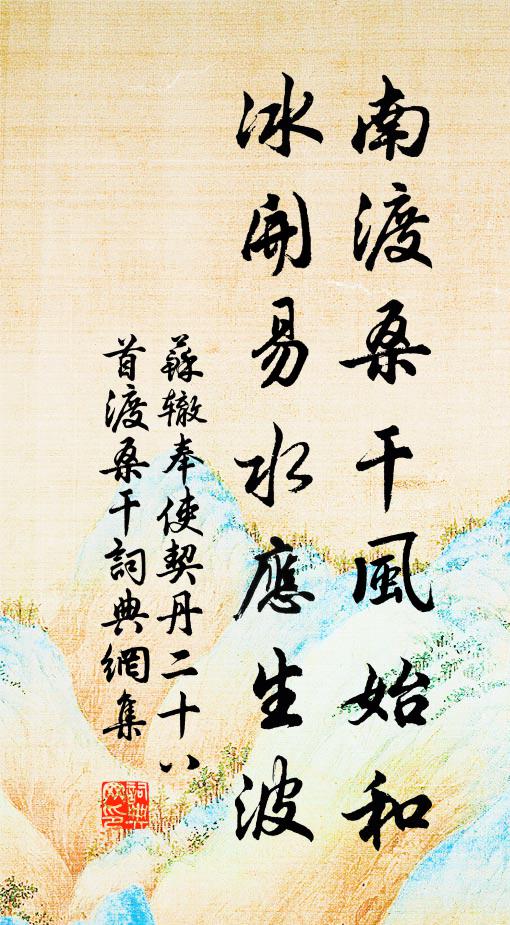 南渡桑干風始和
冰開易水應生波
蘇轍奉使契丹二十八
首渡桑干詞典網集